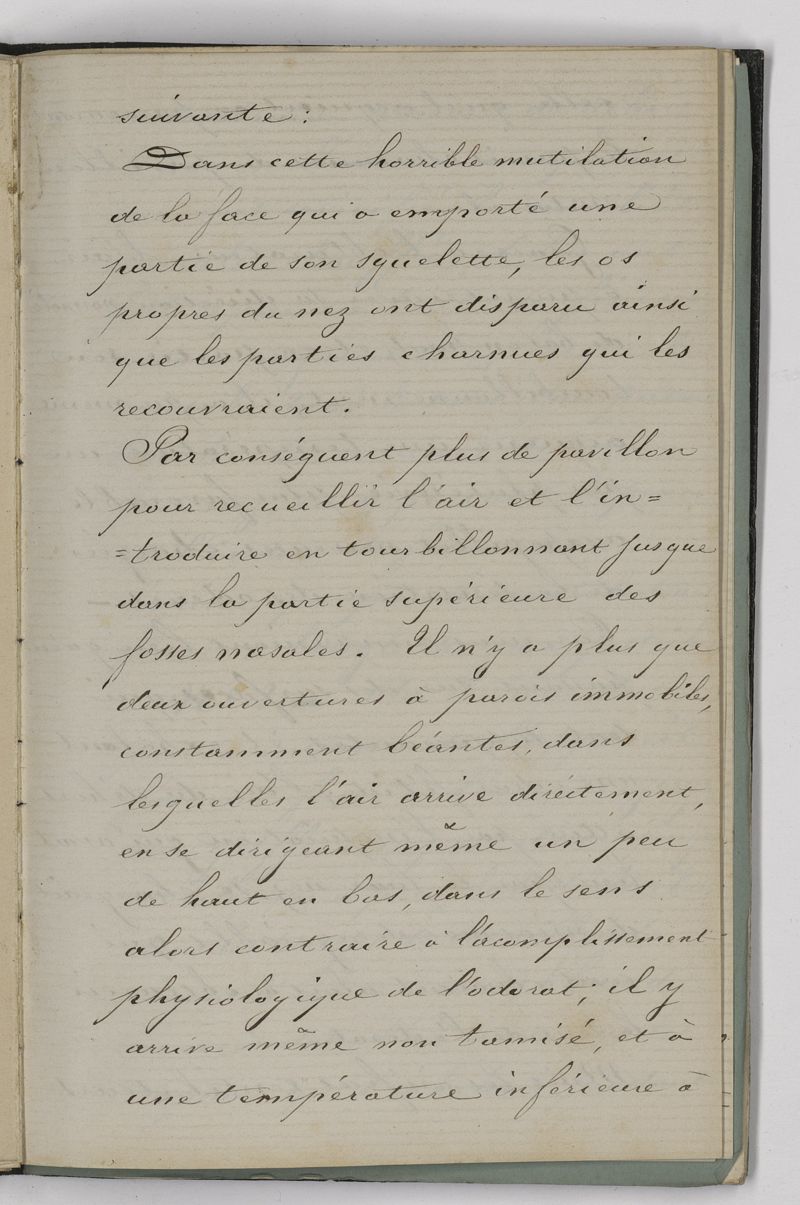 suivante :
Dans cette horrible mutilation
de la face qui a emporté une
partie de son squelette, les os
propres du nez ont disparu ainsi
que les parties charnues qui les
recouvraient.
Par conséquent plus de pavillon
pour recueillir l'air et l'in=
=troduire en tourbillonnant jusque
dans la partie supérieure des
fosses nasales. Il n'y a plus que
deux ouvertures à parois immobiles,
constamment béantes, dans
lesquelles l'air arrive directement,
en se dirigeant même un peu
de haut en bas, dans le sens
alors contraire à l'acomplissement
physiologique de l'odorat; il y
arrive même non tamisé, et à
une température inférieure à